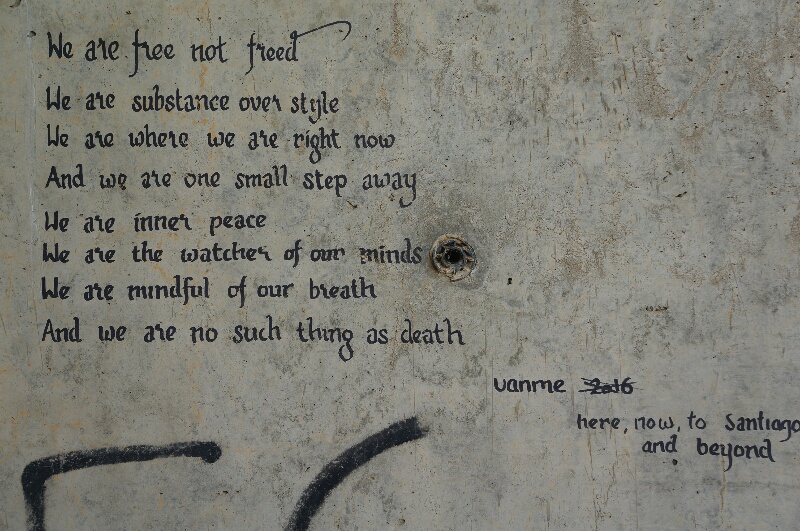 We are free not freed
We are substance over style
We are where we are right now
And we are one small step away
We are inner peace
We are the watcher of our minds
We are mindful of our breath
And we are no such thing as death
vanme 2016
here, now, to Santiago
and beyond